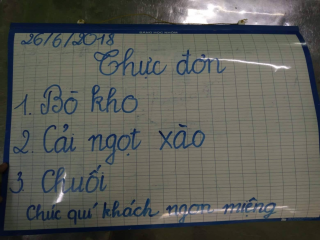 26/6/2018
Thực đơn
1. Bò kho
2. Cải ngọt xào
3 Chuối
Chúc quí khách ngon miệng